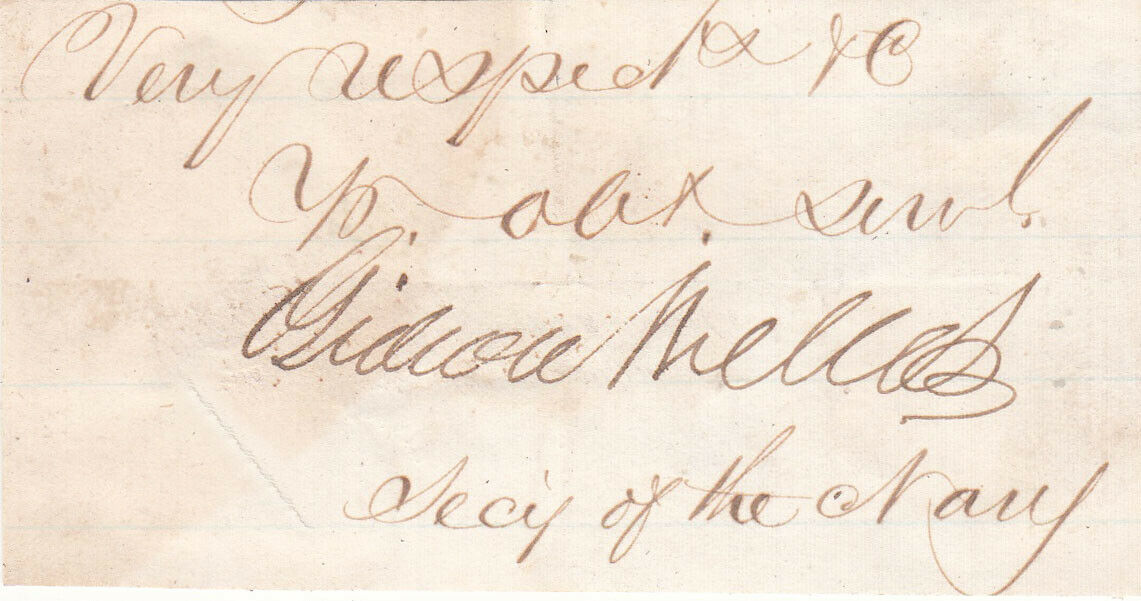 Very respect &c
Yr. obt. servt.
Gideon Welles
Sec'y of the Navy